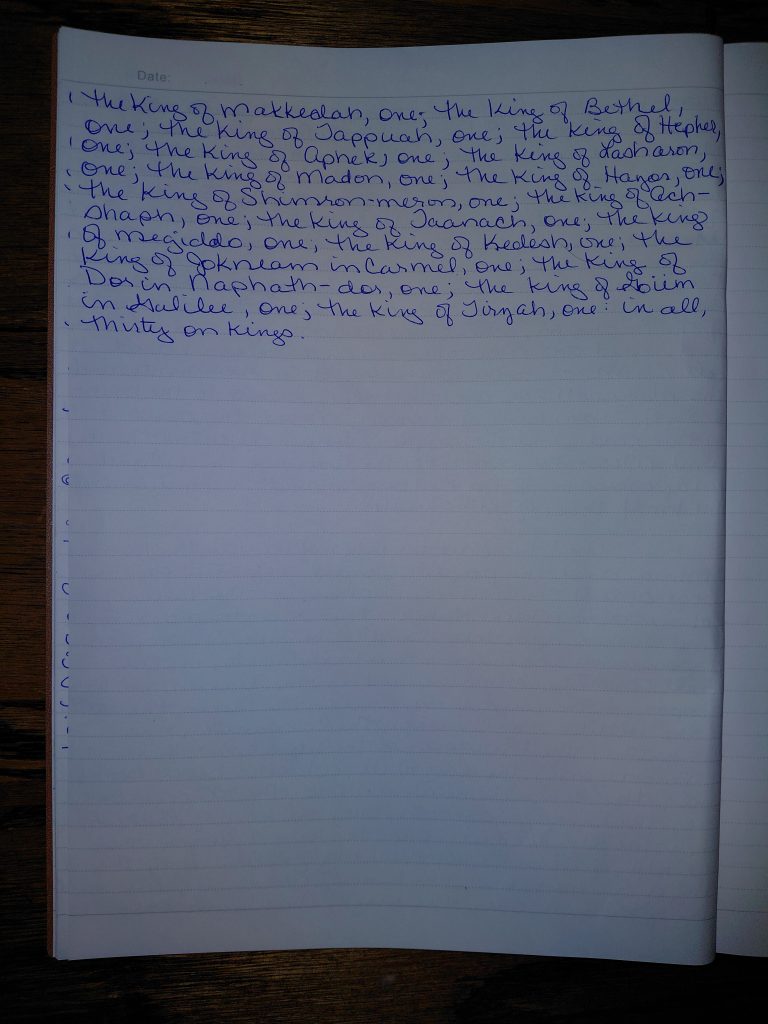 Date:
the King of Makkedah, one; the King of Bethel,
one; the King of Tappuah, one; the King of Hepher,
one; the King of Aphek, one; the King of Lasharon,
one; the King of Madon, one; the King of Hazor, one;
the King of Shimron-meron, one; the King of Ach-
shaph, one; the King of Taanach, one; the King
of Megiddo, one; the King of Kedesh, one; the
King of Jokneam in Carmel, one; the King of
Dor in Naphath-dor, one; the King of Goiim
in Galilee, one; the King of Tirzah, one: in all,
thirty on Kings.